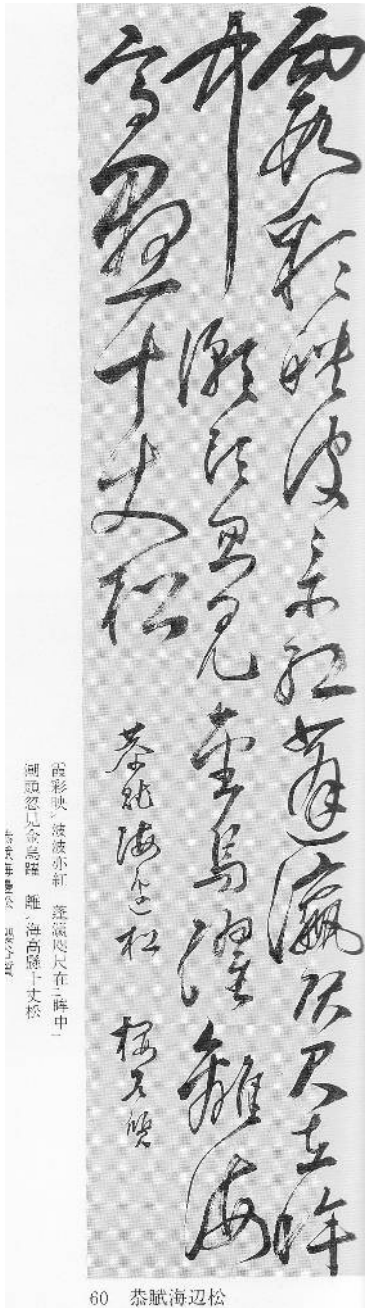 霞彩映波〻亦紅蓬瀛咫尺在眸
中潮頭忽見金烏躍離海
高懸十丈松
恭賦海辺松
霞彩映㆑波波亦紅 蓬瀛咫尺在㆓眸中㆒
潮頭忽見金烏躍 離㆑海高懸十丈松
60 恭賦海辺松